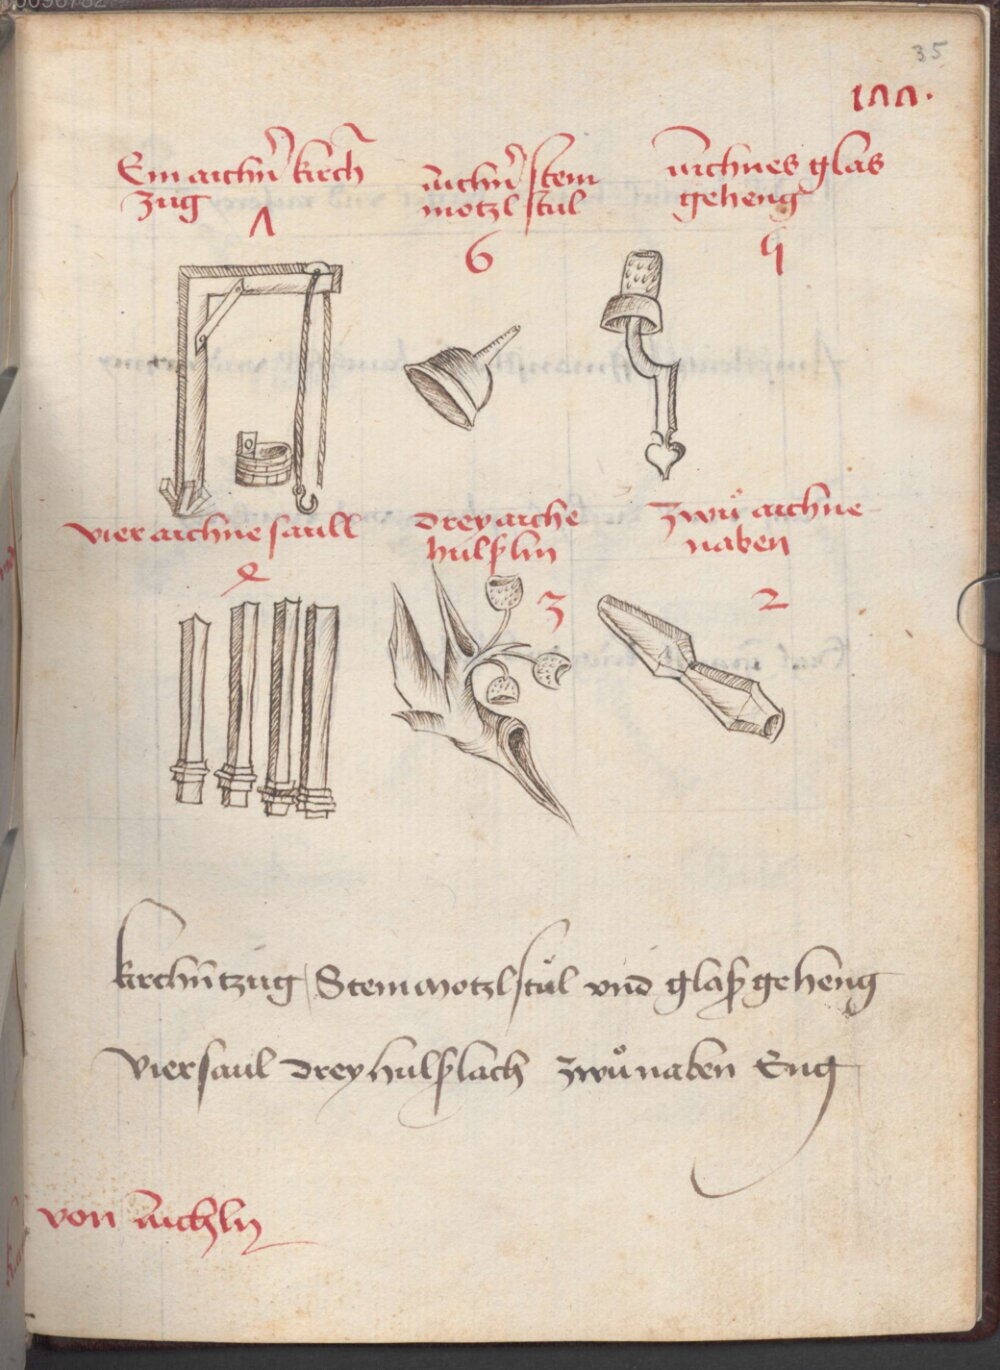 35
1００.
Ein aichn̄ kirch
zug
Λ
aichn̄ stein
motzl stul
6
aichnes glas
geheng
vier aichne saull
drey aiche
hulslin
3
zwů aichne
naben
2
kirchn̄tzug / Steinmotzl stůl vnd glaß geheng
vier saul drey hulslach zwů naben Eng
von aichln